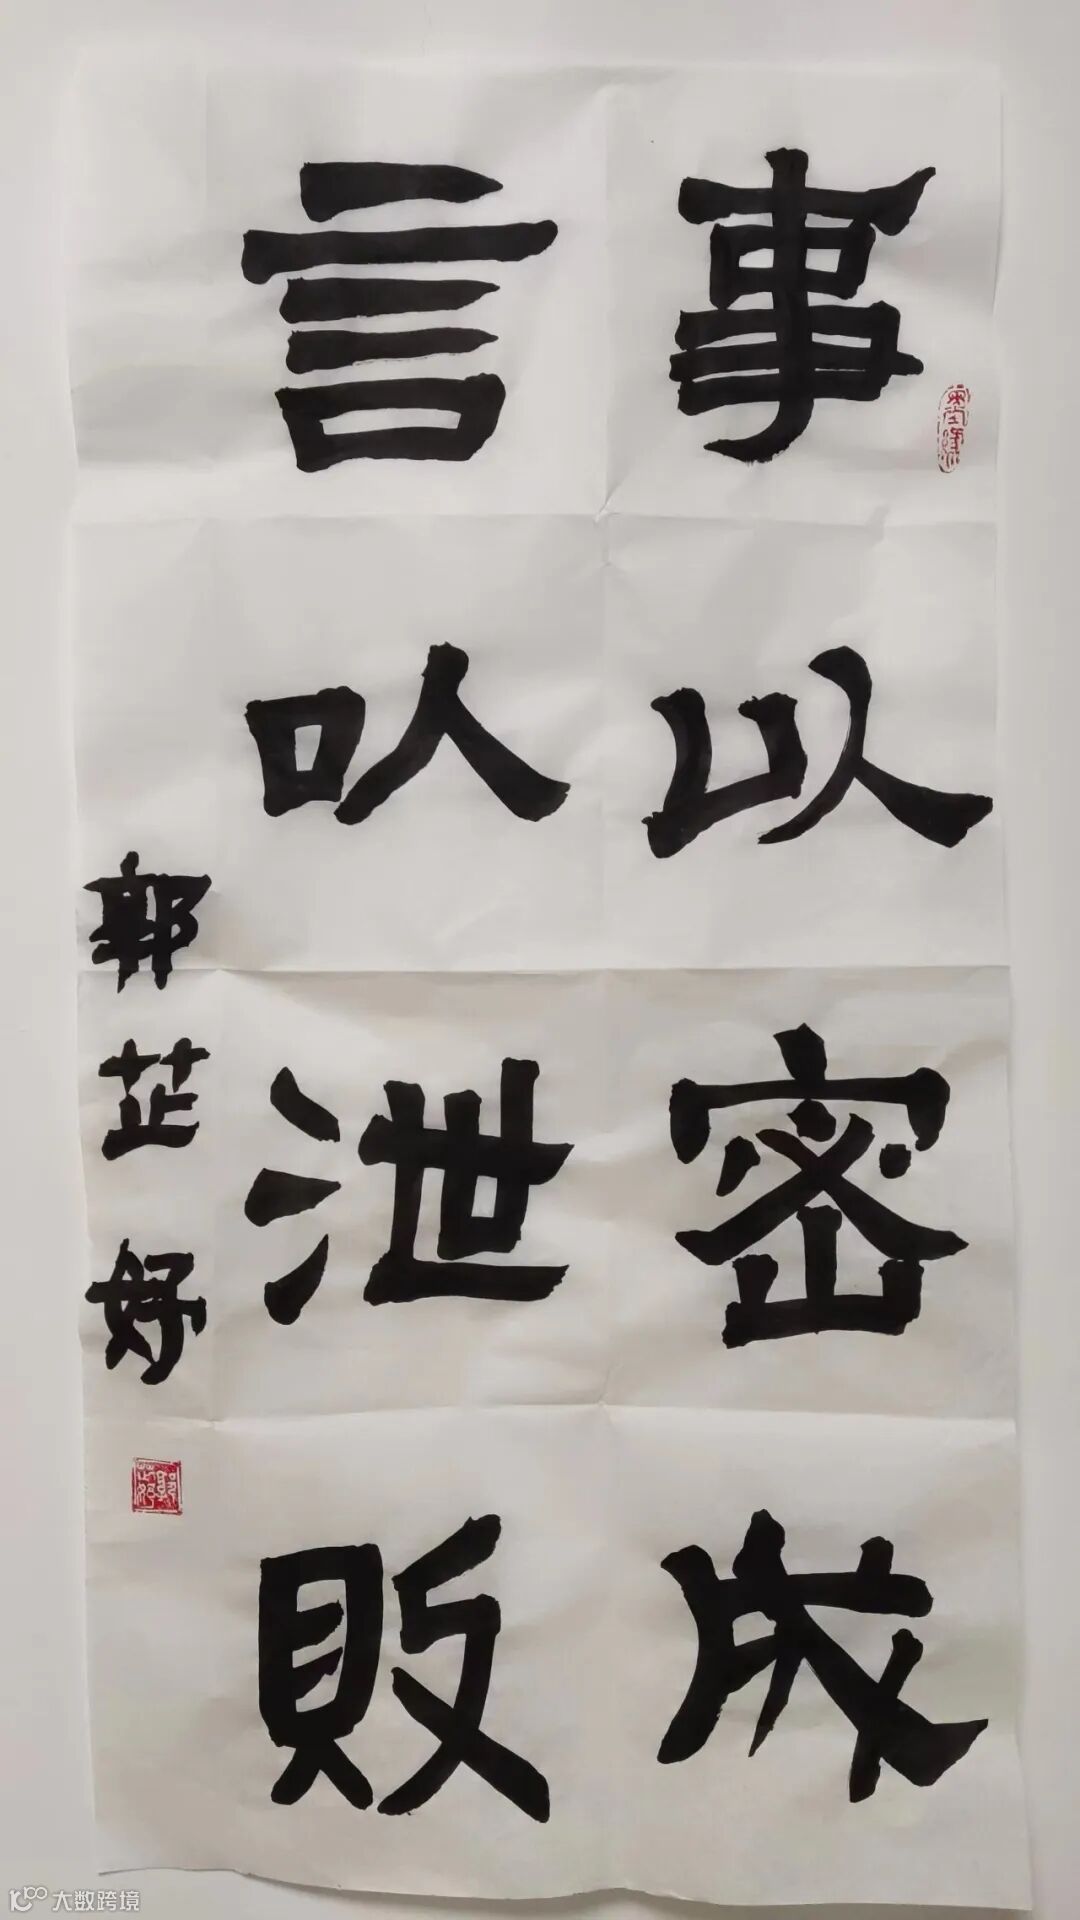 事以密成
言以泄败
郭芷妤
大数跨境